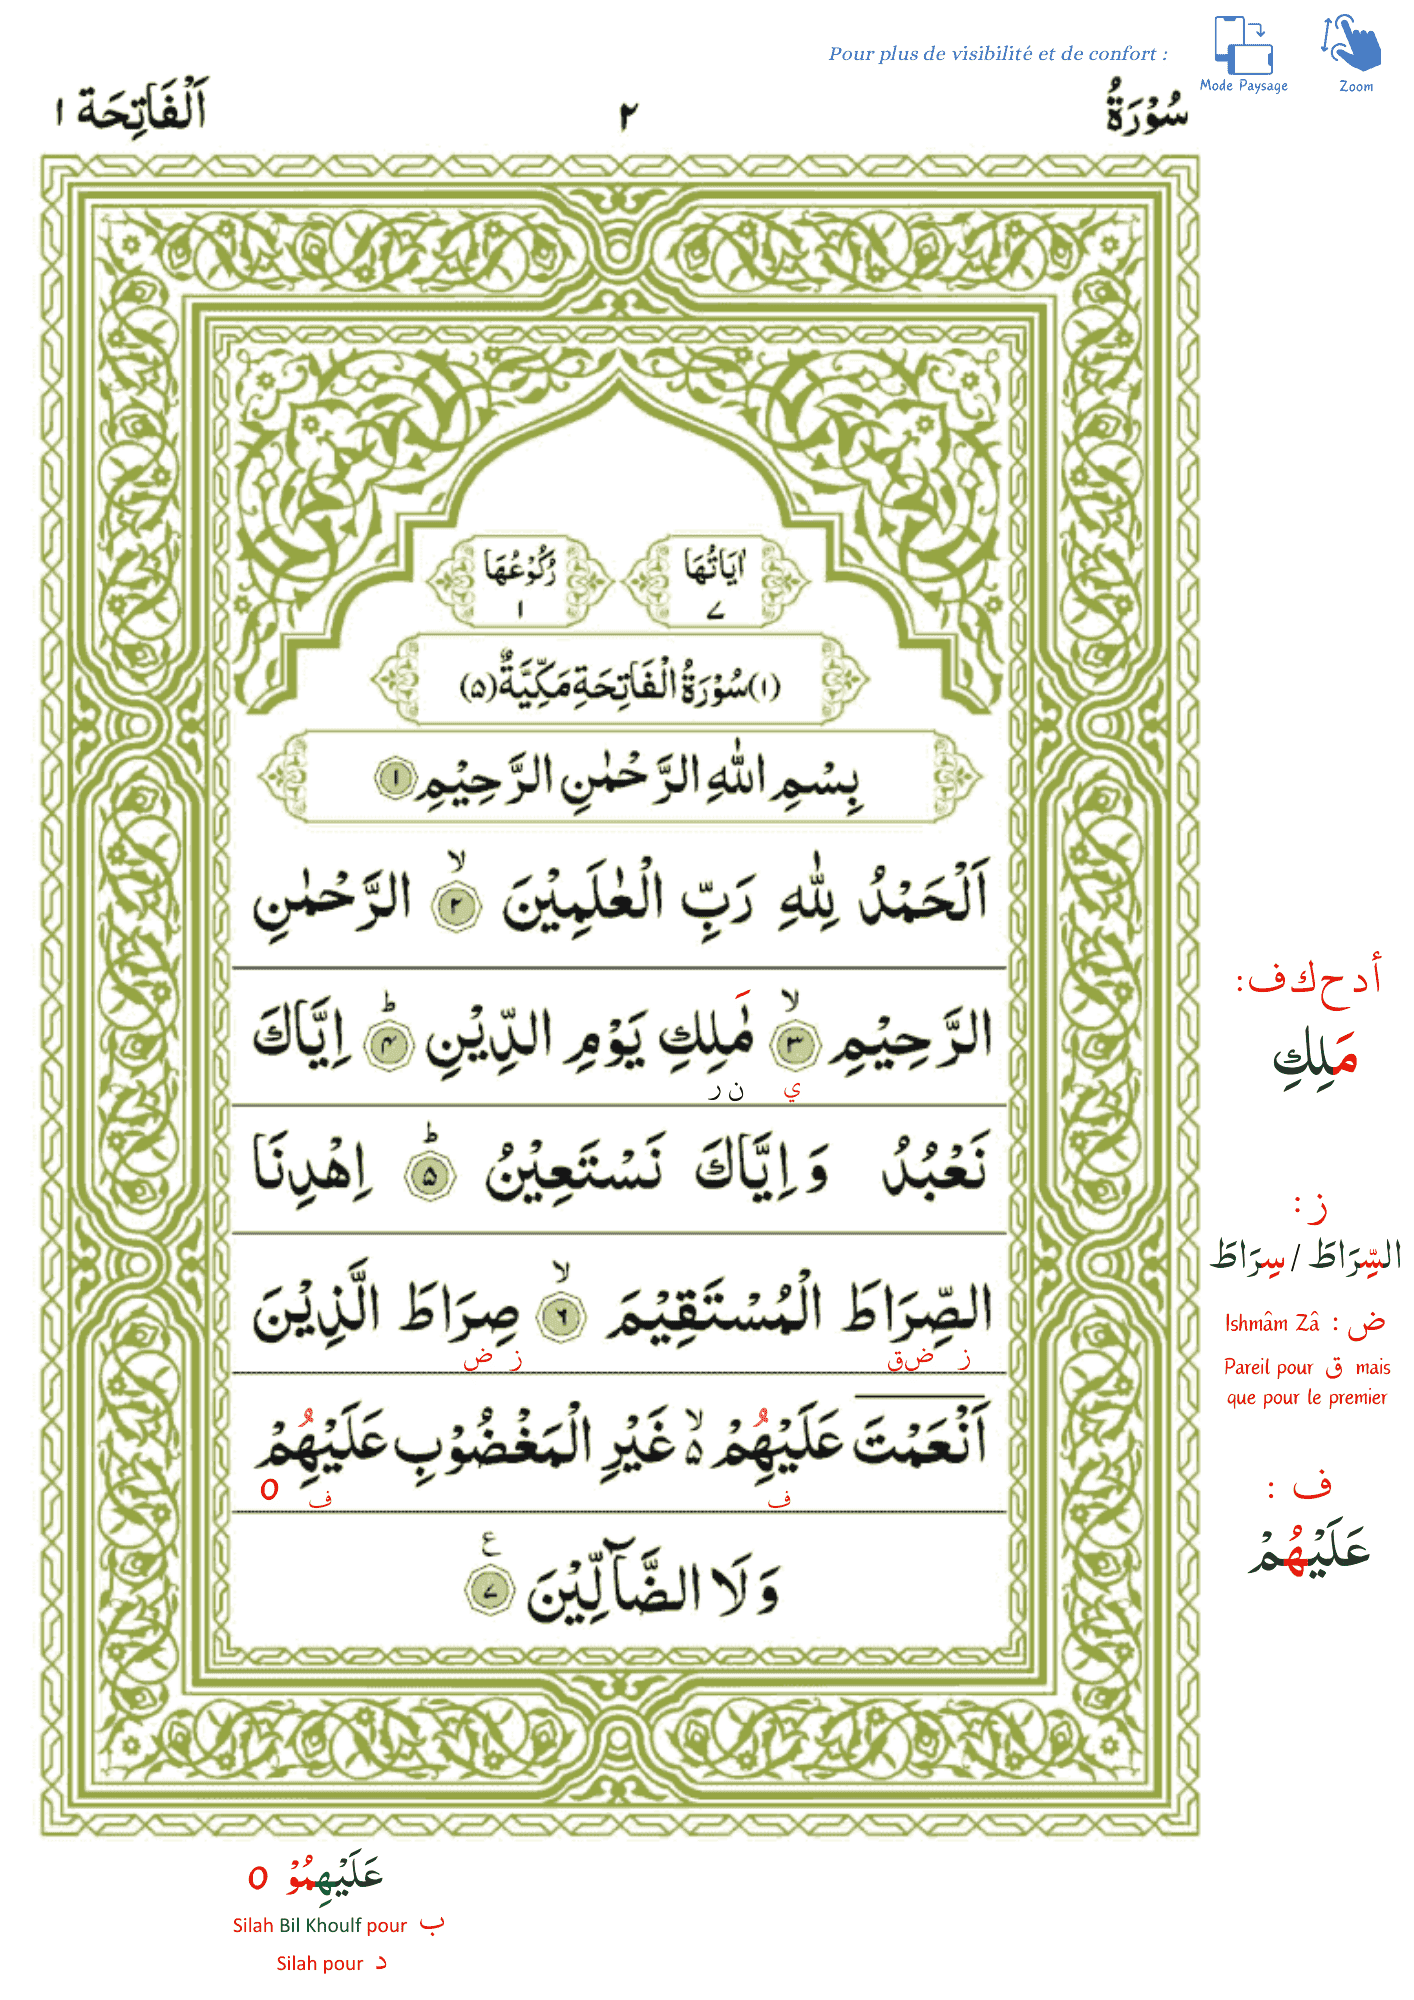 Pour plus de visibilité et de confort :
Mode Paysage
Zoom
سُوْرَةُ ٢ اَلْفَاتِحَة ١
اٰيَاتُهَا ٧
رُكُوْعُهَا ١
(١) سُوْرَةُ الْفَاتِحَةِ مَكِّيَّةٌ (٥)
بِسْمِ اللّٰهِ الرَّحْمٰنِ الرَّحِيْمِ ١
اَلْحَمْدُ لِلّٰهِ رَبِّ الْعٰلَمِيْنَ ۙ ٢ الرَّحْمٰنِ
الرَّحِيْمِ ۙ ٣ مٰلِكِ يَوْمِ الدِّيْنِ ؕ ۴ اِيَّاكَ
ي ن ر
نَعْبُدُ وَاِيَّاكَ نَسْتَعِيْنُ ؕ ۵ اِهْدِنَا
الصِّرَاطَ الْمُسْتَقِيْمَ ۙ ۶ صِرَاطَ الَّذِيْنَ
ز ض ق ز ض
اَنْعَمْتَ عَلَيْهِمْ ۙ ۵ غَيْرِ الْمَغْضُوْبِ عَلَيْهِمْ
ف ف O
وَلَا الضَّآلِّيْنَ ع ٧
أ د ح ك ف :
مَلِكِ
ز :
السِّرَاطَ / سِرَاطَ
ض : Ishmâm Zâ
Pareil pour ق mais
que pour le premier
ف :
عَلَيْهُمْ
عَلَيْهِمُوْ O
Silah Bil Khoulf pour ب
Silah pour د